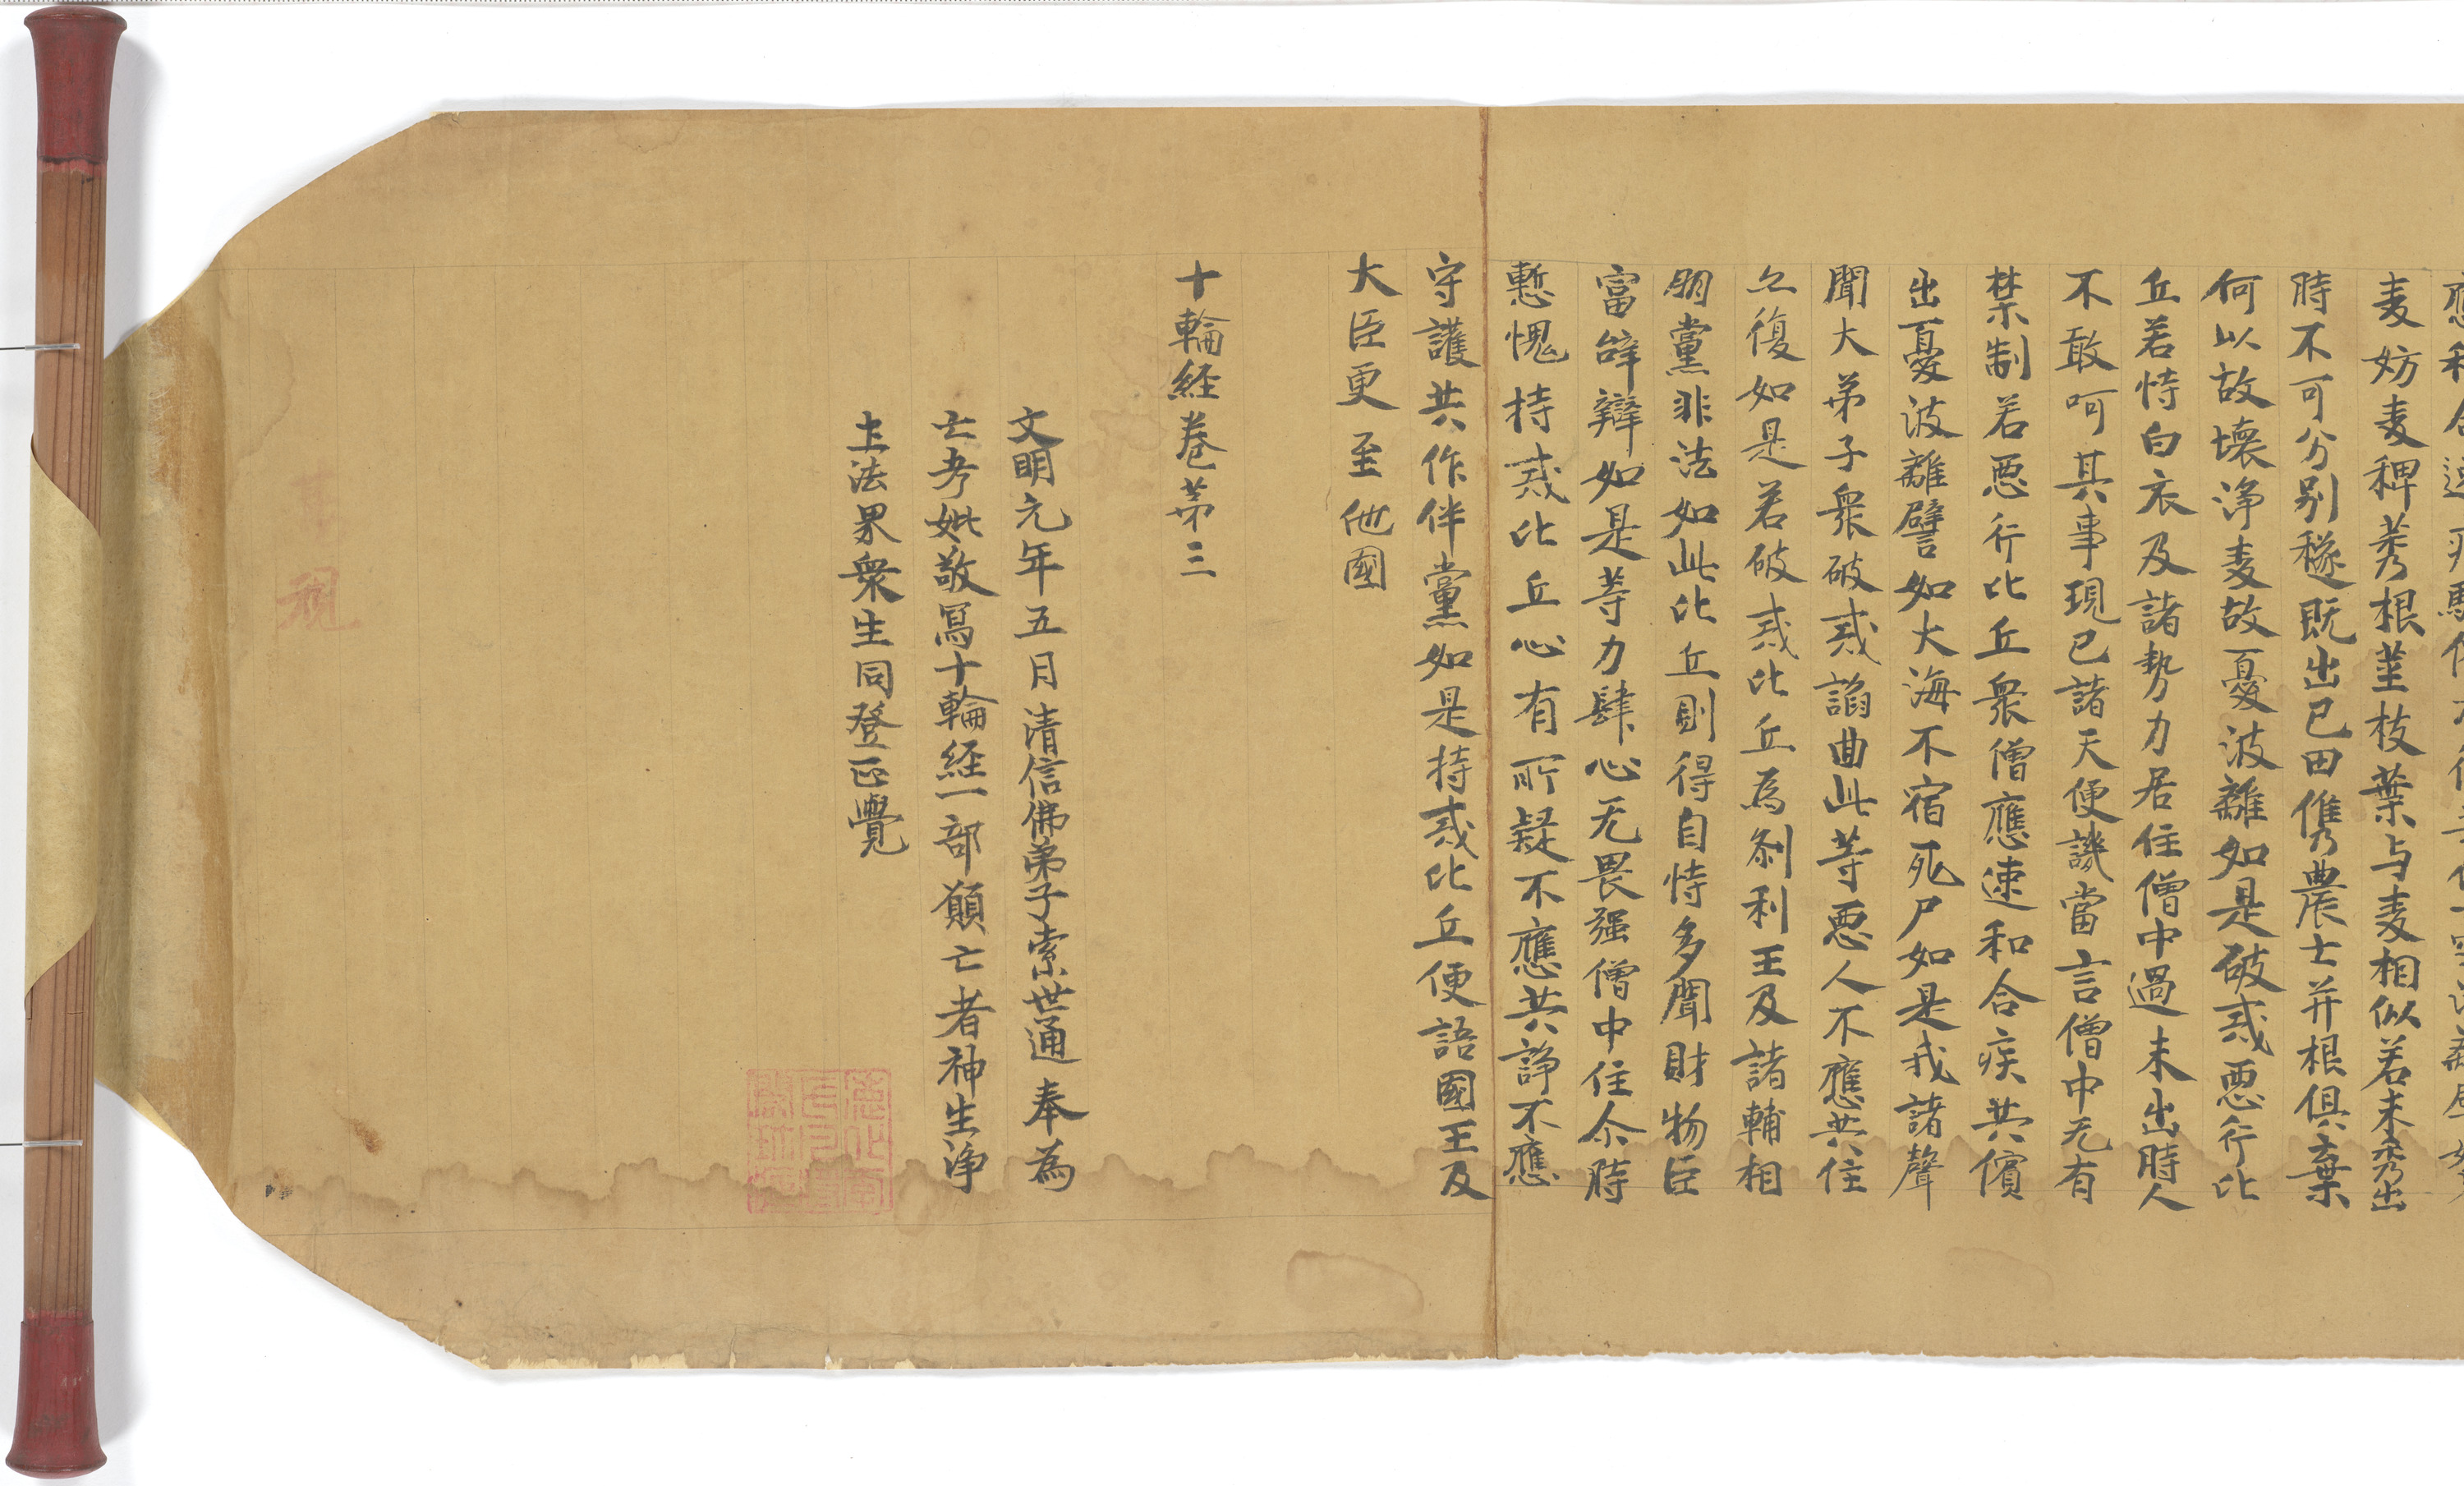 麦妨麦稗莠根莖枝葉与麦相似若未秀出
時不可分别穟既出已田儁農士并根俱棄
何以故壞浄麦故憂波離如是破戒悪行比
丘若恃白衣及諸勢力居住僧中過未出時人
不敢呵其事現已諸天便譏當言僧中无有
禁制若悪行比丘衆僧應速和合疾共儐
出憂波離譬如大海不宿死尸如是我諸聲
聞大弟子衆破戒諂曲此等悪人不應共住
復如是若破戒比丘為刹利王及諸輔相
朋黨非法如此比丘則得自恃多聞財物臣
富辞辯如是等力肆心无畏强僧中住尒時
慙愧持戒比丘心有所疑不應共諍不應
守護共作伴黨如是持戒比丘便語國王及
大臣更至他國
十輪経卷苐三
文明元年五月清信佛弟子索世通奉為
亡考妣敬冩十輪経一部願亡者神生浄
土法界衆生同登正覺